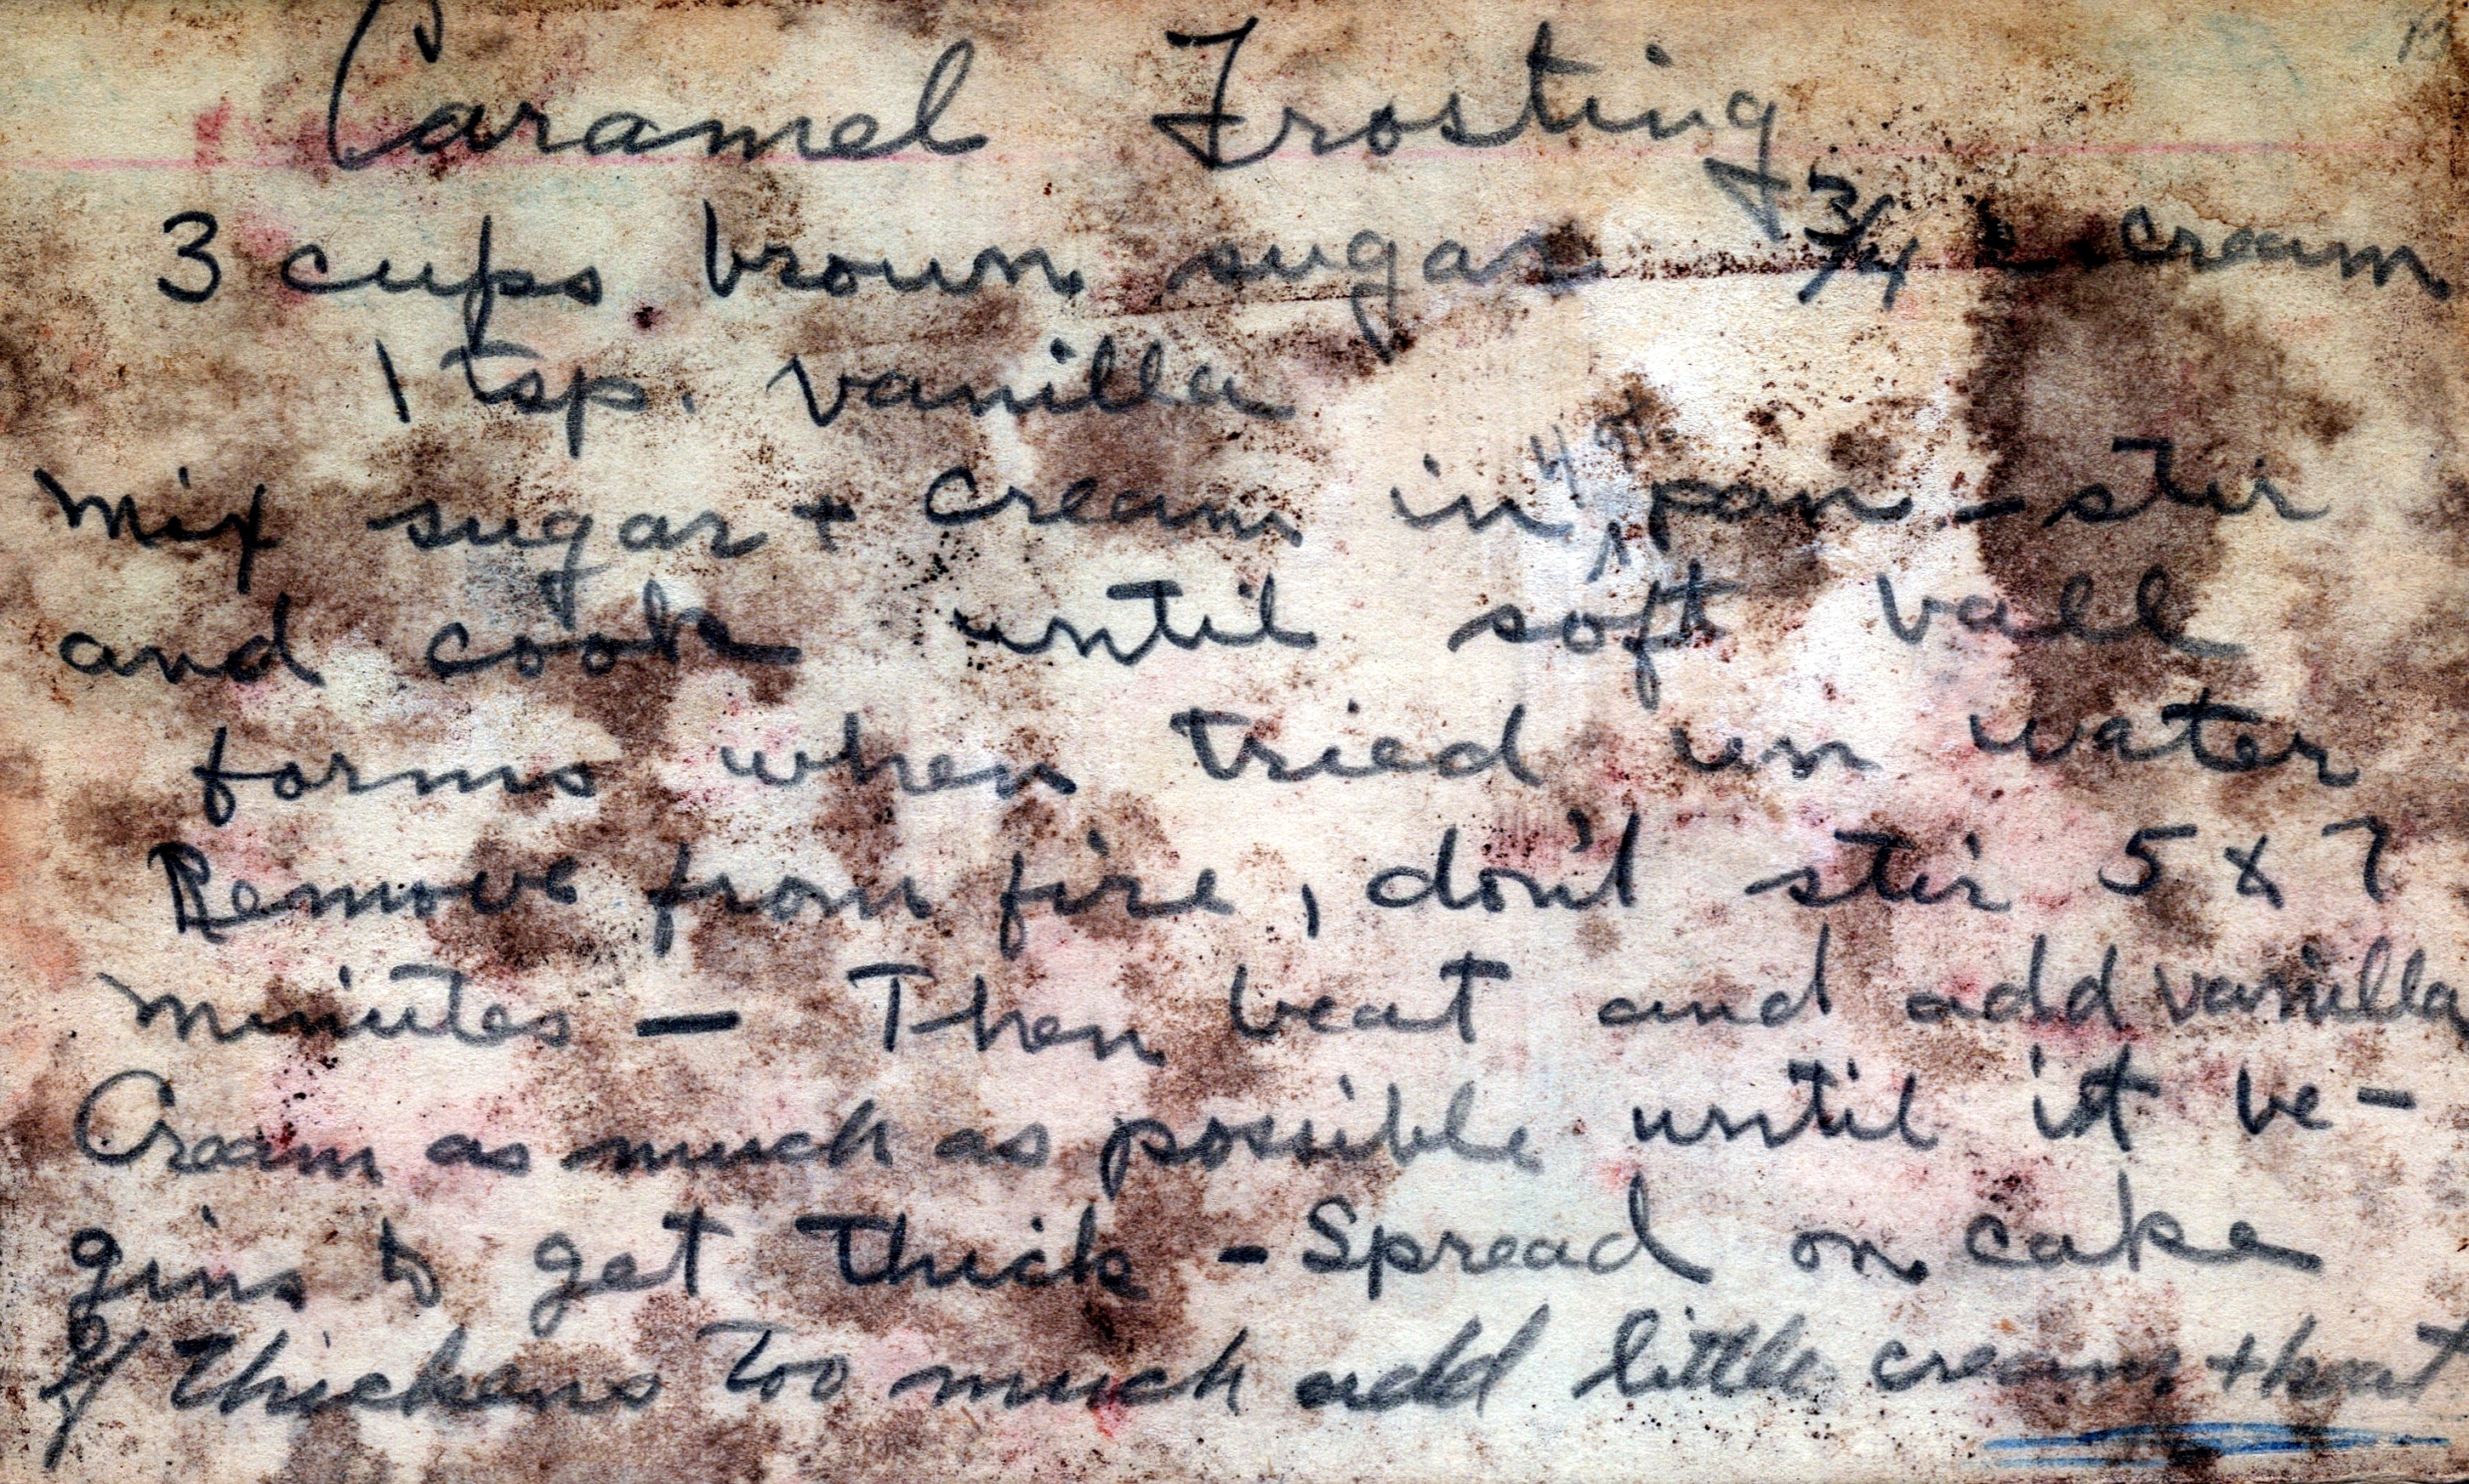 Caramel Frosting
3 cups brown sugar 3/4 c cream
1 tsp. vanilla
Mix sugar + cream in 4 qt. pan - stir
and cook until soft ball
forms when tried in water
Remove from fire, don't stir 5 to 7
minutes — Then beat and add vanilla
Cream as much as possible until it be-
gins to get thick - Spread on cake
If thickens too much add little cream + heat